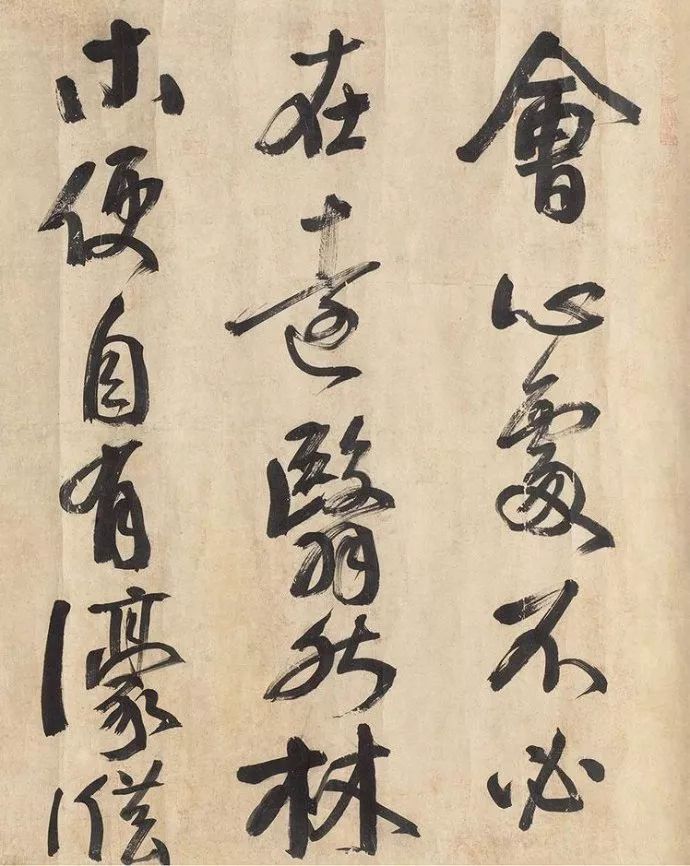 會心處不必
在遠翳然林
木便自有濠濮